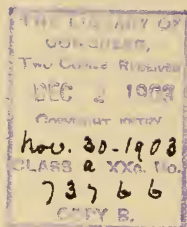 THE LIBRARY OF
CONGRESS,
Two Copies Received
DEC 2 1903
Copyright Entry
Nov. 30-1903
CLASS a XXc. No.
73766
COPY B.